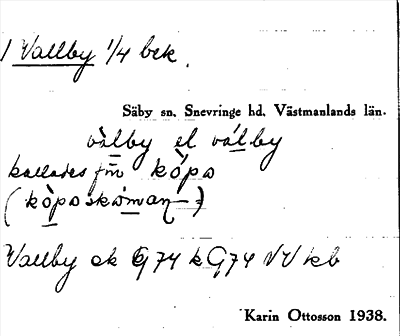 1 Vallby 1/4 bek.
Säby sn. Snevringe hd. Västmanlands län.
vàlby el válby
kallades förr kö̀pa
(kö̀paskòman–)
Vallby ek G74 k G74 NV kb
Karin Ottosson 1938.